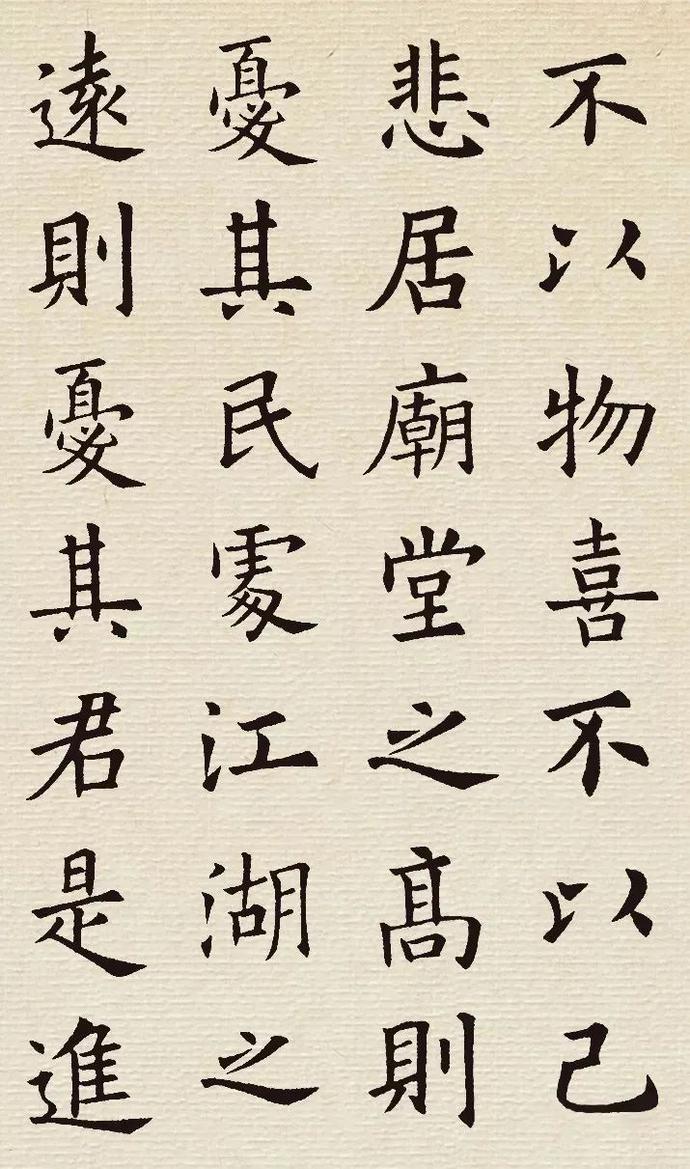 不以物喜不以己
悲居廟堂之髙則
憂其民處江湖之
逺則憂其君是進